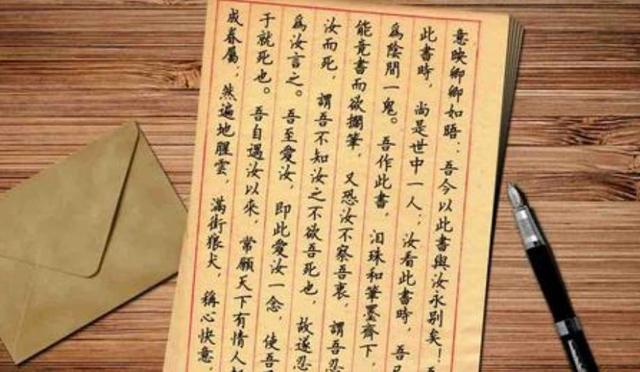 意映卿卿如晤：吾今以此書與汝永別矣！
此書時，尚是世中一人；汝看此書時，吾
爲陰間一鬼。吾作此書，泪珠和筆墨齊下，
能竟書而欲擱筆，又恐汝不察吾衷，謂吾忍
汝而死，謂吾不知汝之不欲吾死也，故遂忍
爲汝言之。吾至愛汝，即此愛汝一念，使吾
于就死也。吾自遇汝以來，常願天下有情人
成眷屬，然遍地腥雲，滿街狼犬，稱心快意，